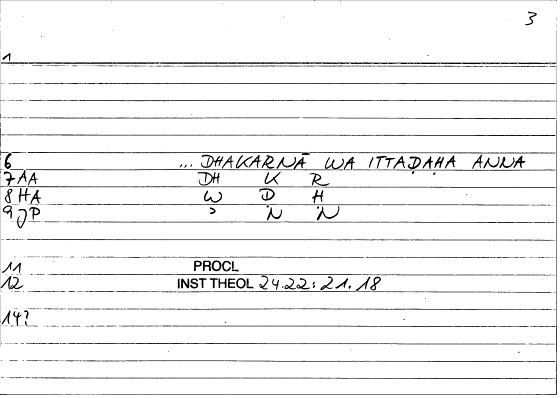 3
1
6 ... DHAKARNĀ WA ITTAḌAḤA ANNA
7 AA DH K R
8 HA W Ḍ Ḥ
9 JP ɔ N N
11 PROCL
12 INST THEOL 24.22: 21.18
14?